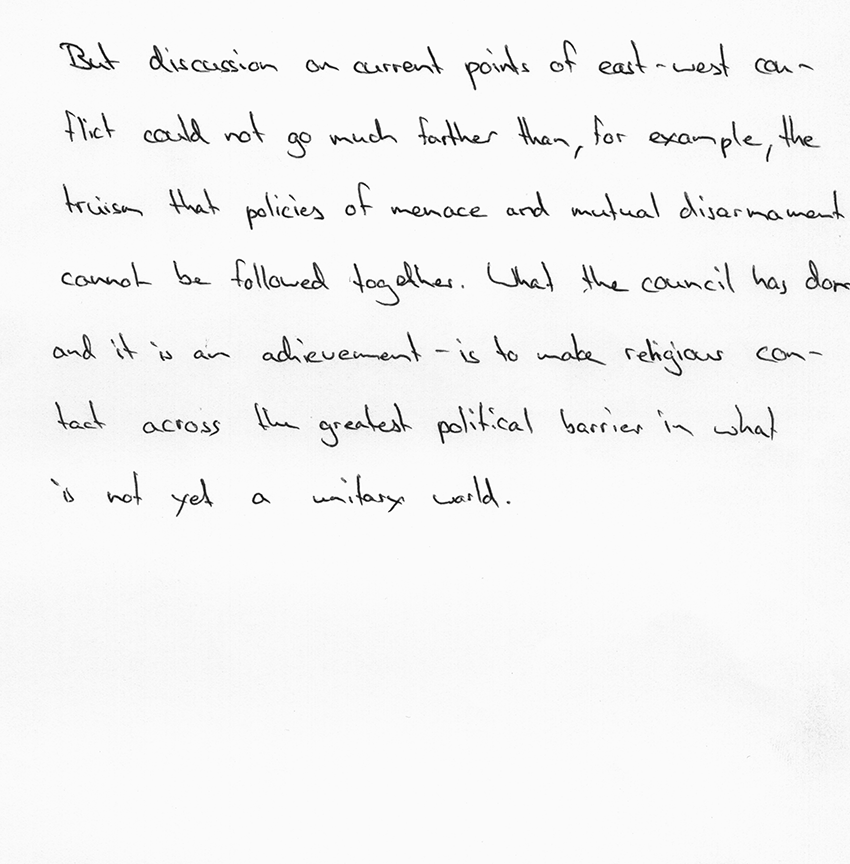 But discussion on current points of east-west con-
flict could not go much farther than, for example, the
truism that policies of menace and mutual disarmament
cannot be followed together. What the council has done
and it is an achievement - is to make religious con-
tact across the greatest political barrier in what
is not yet a unitary world.